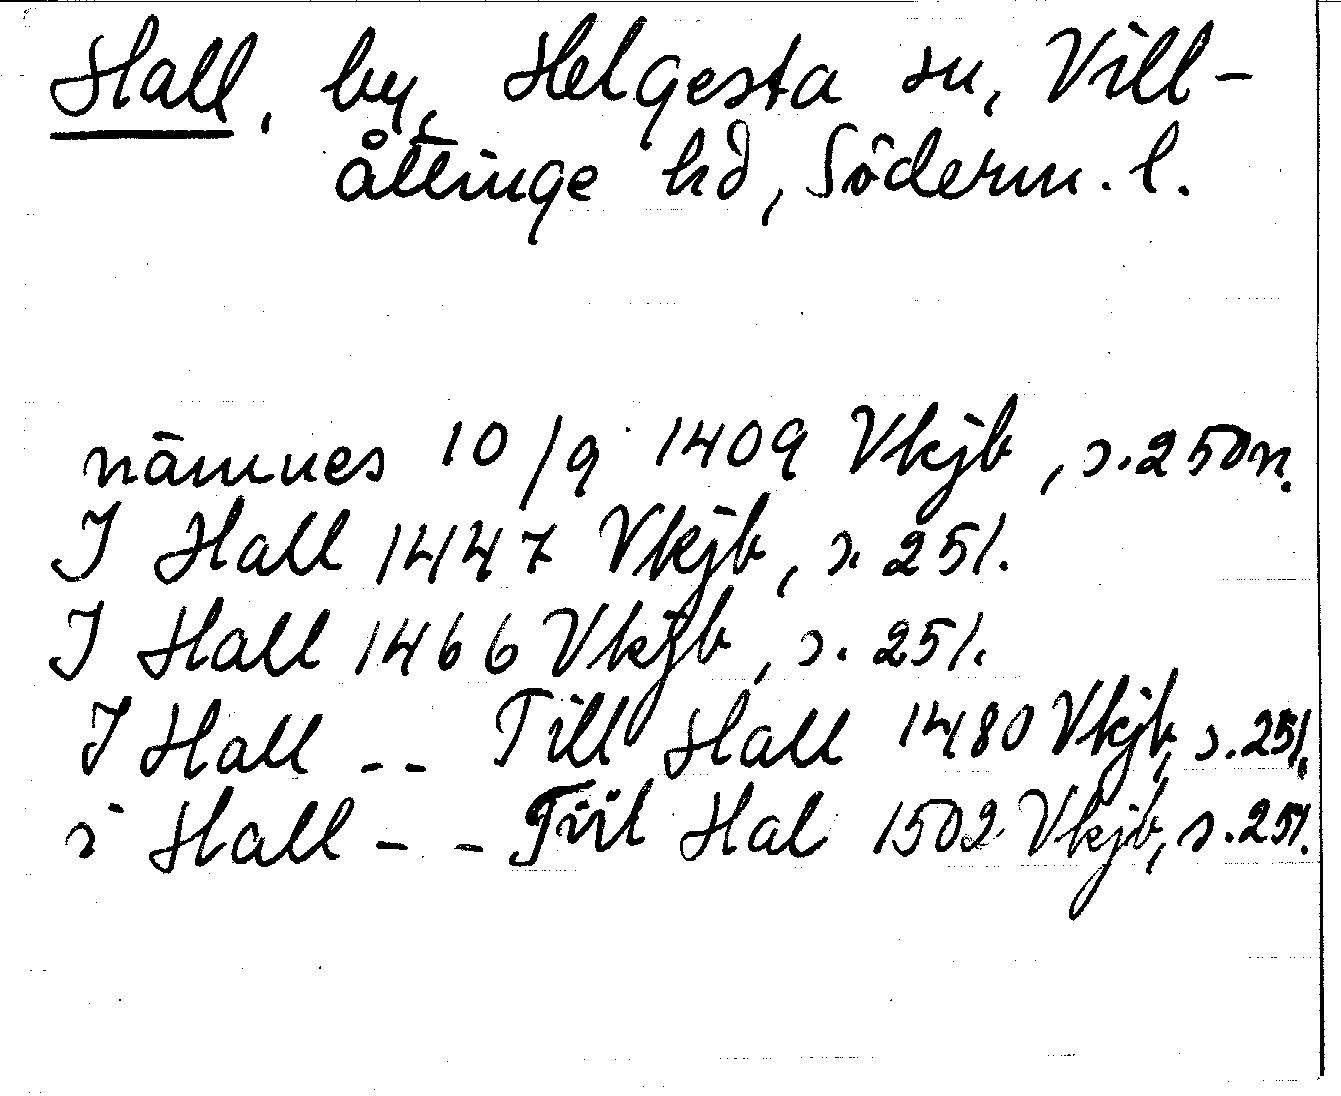 Hall, by, Helgesta sn, Vill-
åttinge hd, Söderm. l.
nämnes 10/9 1409 Vkjb, s. 250 n.
I Hall 1447 Vkjb, s. 251.
I Hall 1466 Vkjb, s. 251.
I Hall -- Till Hall 1480 Vkjb, s. 251.
i Hall -- Tiil Hal 1502 Vkjb, s. 251.